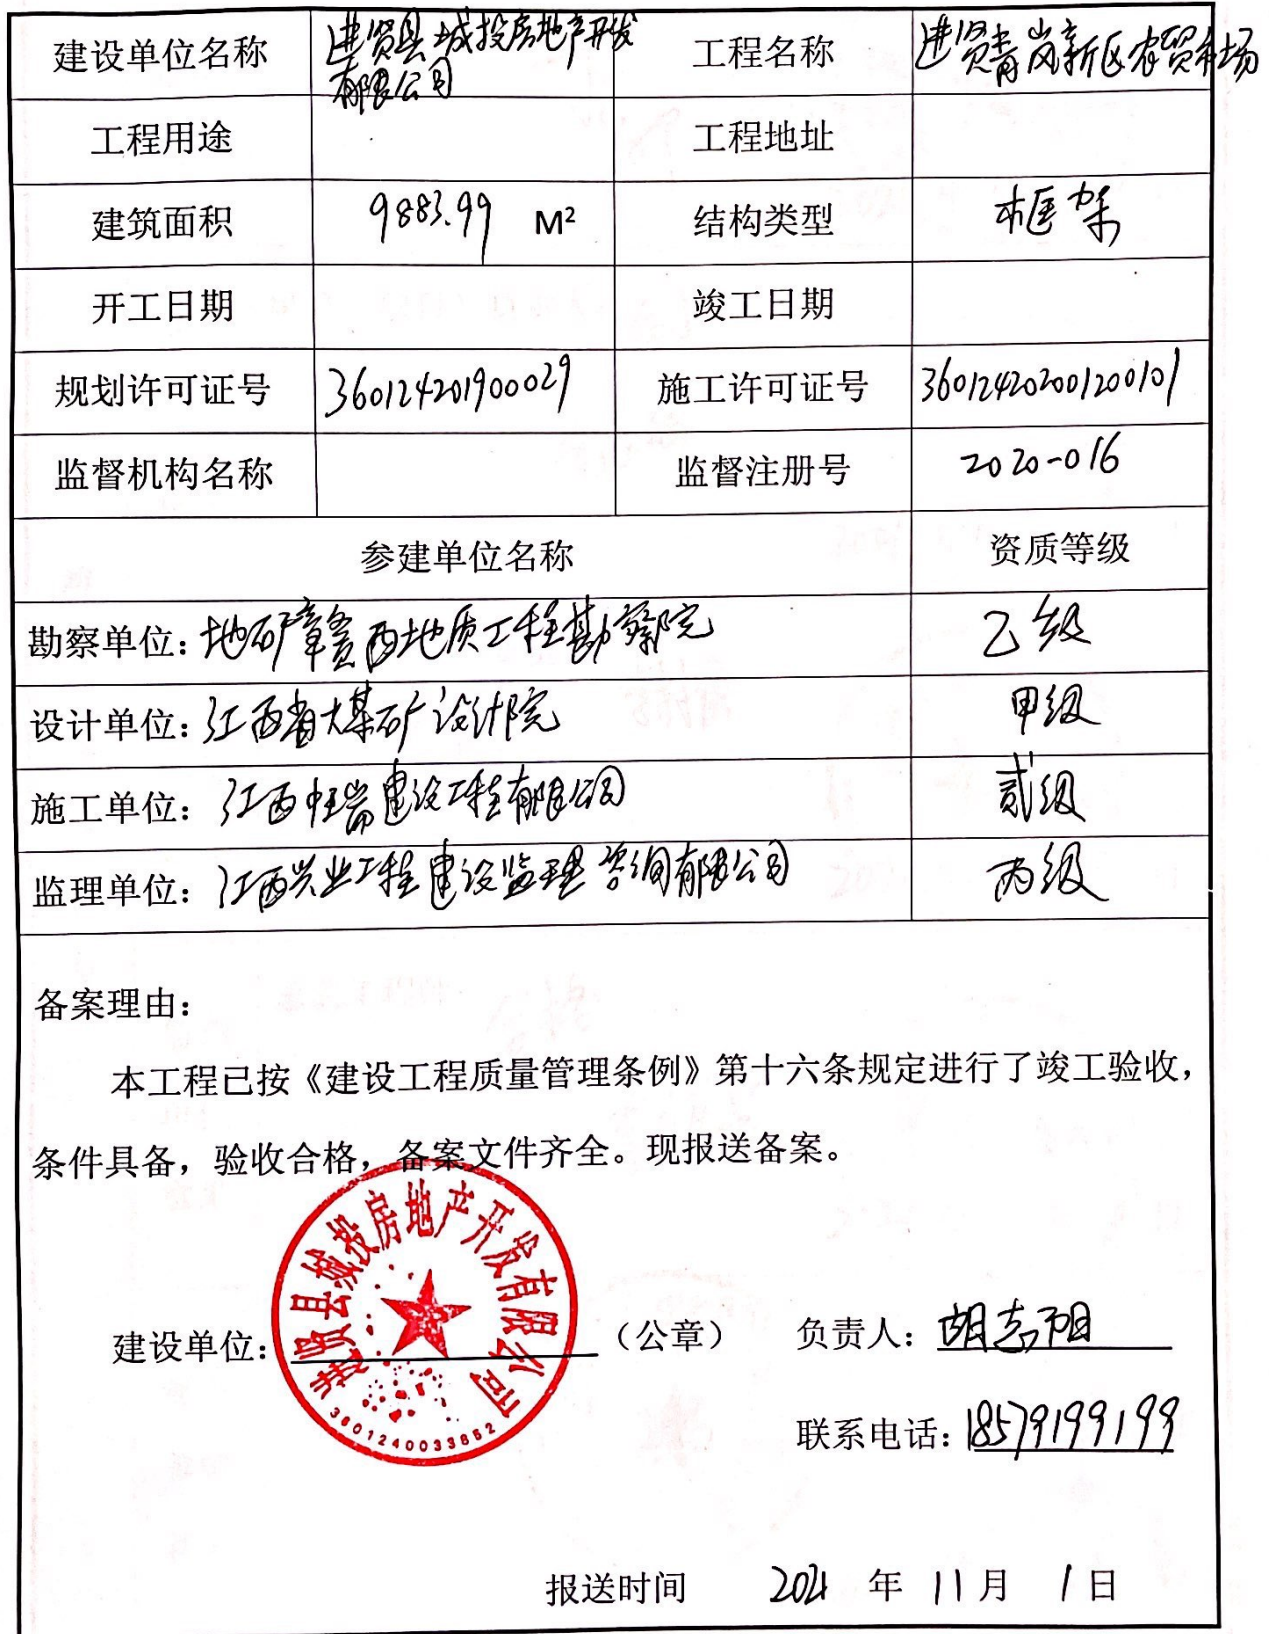 建设单位名称 进贤县城投房地产开发有限公司 工程名称 进贤青岚新区农贸市场
工程用途 工程地址
建筑面积 9883.99 M² 结构类型 框架
开工日期 竣工日期
规划许可证号 360124201900029 施工许可证号 360124202001200101
监督机构名称 监督注册号 2020-016
参建单位名称 资质等级
勘察单位：地矿赣西地质工程勘察院 乙级
设计单位：江西省煤矿设计院 甲级
施工单位：江西中瑞建设工程有限公司 贰级
监理单位：江西兴业工程建设监理咨询有限公司 丙级
备案理由：
本工程已按《建设工程质量管理条例》第十六条规定进行了竣工验收，
条件具备，验收合格，备案文件齐全。现报送备案。
进贤县城投房地产开发有限公司
建设单位： （公章） 负责人：胡志阳
3601240033852
联系电话：18579199199
报送时间 2021 年 11 月 1 日